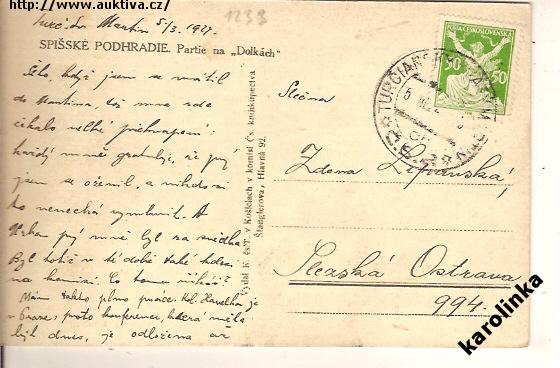 http://www.auktiva.cz/
Turč. Sv. Martin 5/3. 1927.
1233
SPIŠSKÉ PODHRADIE. Partie na „Dolkách“
Milo, když jsem se vrátil
do Martina, tož mne zde
čekalo velké překvapení:
každý mně gratuluje, že prý
jsem se oženil, a nikdo si
to nenechá vymluvit. A
prý mně byl za svědka.
Byl totiž v té době také kdesi
na komisi. Co tomu říkáš?
Mám takto plno práce. Kol. Havelka je
v Praze, proto konference, která měla
být dnes, je odložena až
Vydal K. čs. T. v Košicích v komisi Čs. kníhkupectva
Štanglerova, Hlavná 92.
POŠTA ČESKOSLOVENSKÁ
50 50
TURČIANSKY
Slečna
Zdena Lipanská,
Slezská Ostrava
994.
karolinka